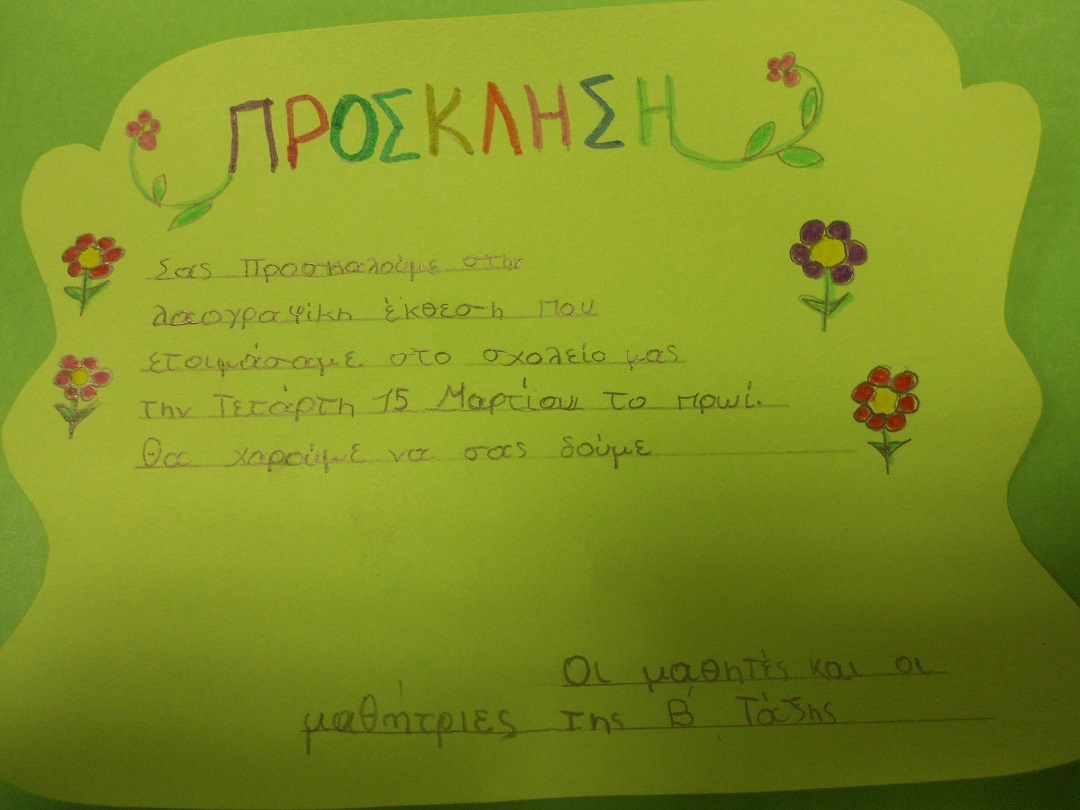 ΠΡΟΣΚΛΗΣΗ
Σας Προσκαλούμε στην
λαογραφική έκθεση που
ετοιμάσαμε στο σχολείο μας
την Τετάρτη 15 Μαρτίου το πρωί.
Θα χαρούμε να σας δούμε
Οι μαθητές και οι
μαθήτριες της Β' Τάξης